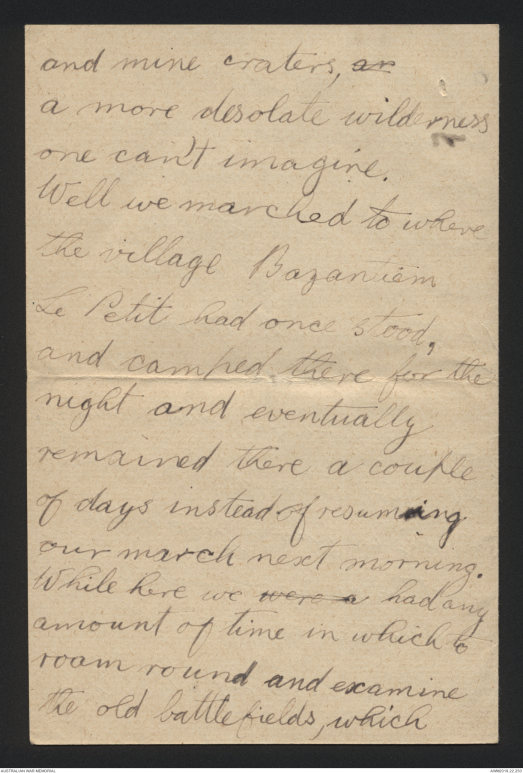 and mine craters, an
a more desolate wilderness
one can't imagine.
Well we marched to where
the village Bazantiem
Le Petit had once stood,
and camped there for the
night and eventually
remained there a couple
of days instead of resuming
our march next morning.
While here we were a had any
amount of time in which to
roam round and examine
the old battlefields, which
AUSTRALIAN WAR MEMORIAL